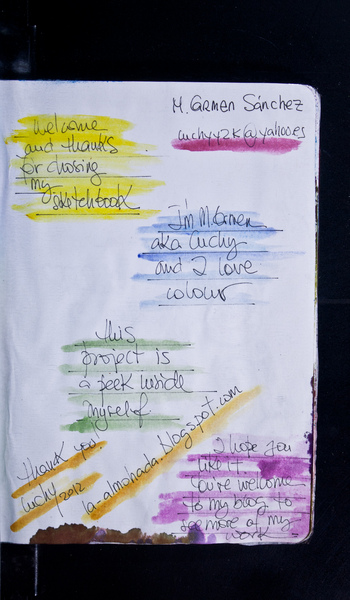 M. Carmen Sánchez
luchyy2k@yahoo.es
Welcome
and thanks
for chosing
my
sketchbook
I'm M. Carmen
aka luchy
and I love
colour
this
project is
a peek inside
myself.
thank you.
luchy 2012
la-almohada.blogspot.com
I hope you
like it.
You're welcome
to my blog to
see more of my
work